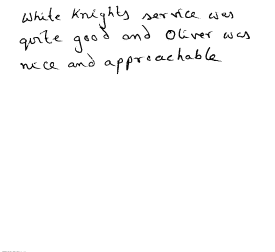 White Knights service was
quite good and Oliver was
nice and approachable